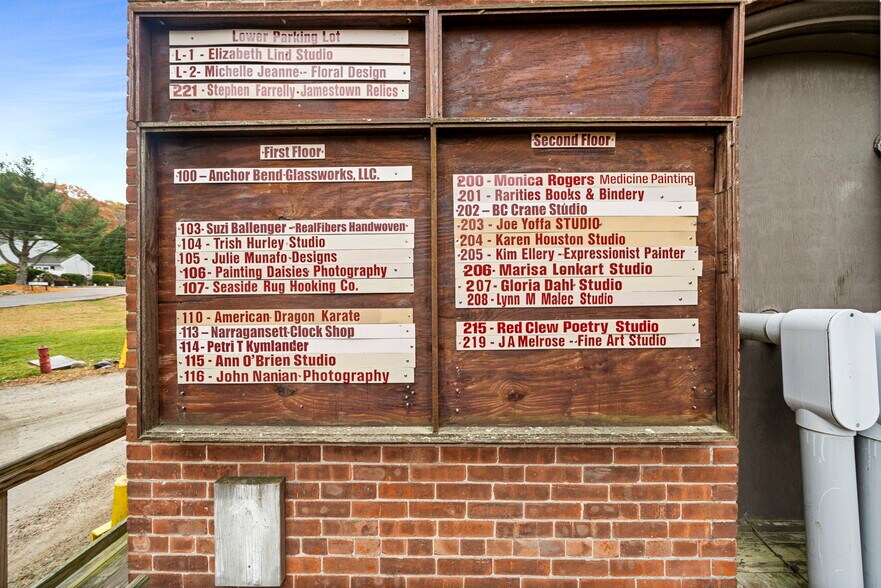 Lower Parking Lot
L-1 - Elizabeth Lind Studio
L-2- Michelle Jeanne -- Floral Design
221 - Stephen Farrelly - Jamestown Relics
First Floor
100 - Anchor Bend Glassworks, LLC.
103- Suzi Ballenger -RealFibers Handwoven
104 - Trish Hurley Studio
105 - Julie Munafo-Designs
106 - Painting Daisies Photography
107 - Seaside Rug Hooking Co.
110 - American Dragon Karate
113 - Narragansett Clock Shop
114- Petri T Kymlander
115 - Ann O'Brien Studio
116 - John Nanian-Photography
Second Floor
200 - Monica Rogers Medicine Painting
201 - Rarities Books & Bindery
202 - BC Crane Studio
203 - Joe Yoffa STUDIO
204 - Karen Houston Studio
205 - Kim Ellery -Expressionist Painter
206 - Marisa Lonkart Studio
207 - Gloria Dahl Studio
208 - Lynn M Malec Studio
215 - Red Clew Poetry Studio
219 - J A Melrose --Fine Art Studio